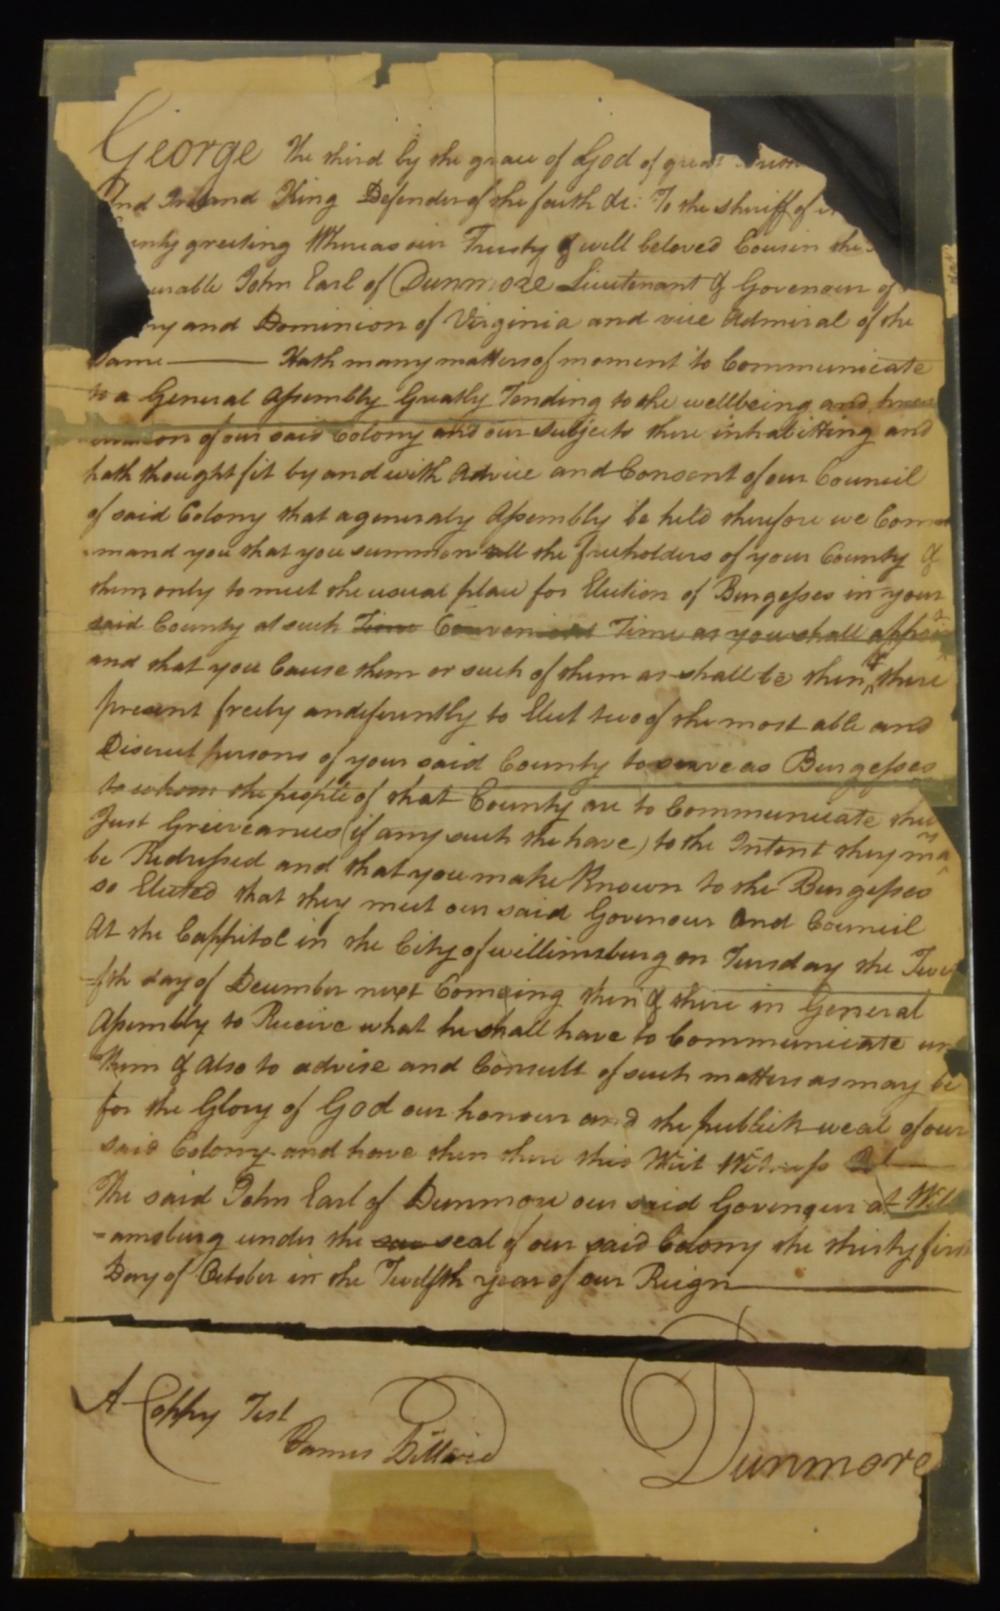 George the third by the grace of God of great
And Ireland King Defender of the faith &c: To the sheriff of
unty greeting Whereas our Trusty & well beloved Cousin the
urable John Earl of Dunmore Lieutenant & Govenour of
ny and Dominion of Virginia and vice Admiral of the
Same —— Hath many matters of moment to Communicate
to a General Assembly Greatly Tending to the wellbeing and
of our said Colony and our Subjects there inhabitting and
hath thought fit by and with Advice and Consent of our Council
of said Colony that a generaly Assembly be held therefore we Com
mand you that you summon all the freeholders of your County &
them only to meet the usual place for Election of Burgesses in your
said County at such Time Convenient Time as you shall appoi
and that you Cause them or such of them as shall be then & there
present freely andiferently to Elect two of the most able and
Discreet persons of your said County to serve as Burgesses
to whom the people of that County are to Communicate their
Just Greiveances (if any such the have) to the Intent they ma
be Redressed and that you make Known to the Burgesses
so Elected that they meet our said Govenour and Council
At the Cappitol in the City of willimsburg on Tursday the Twel
=fth day of December next Comeing then & there in General
Assembly to Receive what he shall have to Communicate un
Them & Also to advise and Consult of such matters as may be
for the Glory of God our honour and the publick weal of our
said Colony and have then there this Writ Witness
The said John Earl of Dunmore our said Govenour at Wil
-amsburg under the seal of our said Colony the thirty first
Day of October in the Twelfth year of our Reign
A Coppy Test
James Dillard
Dunmore